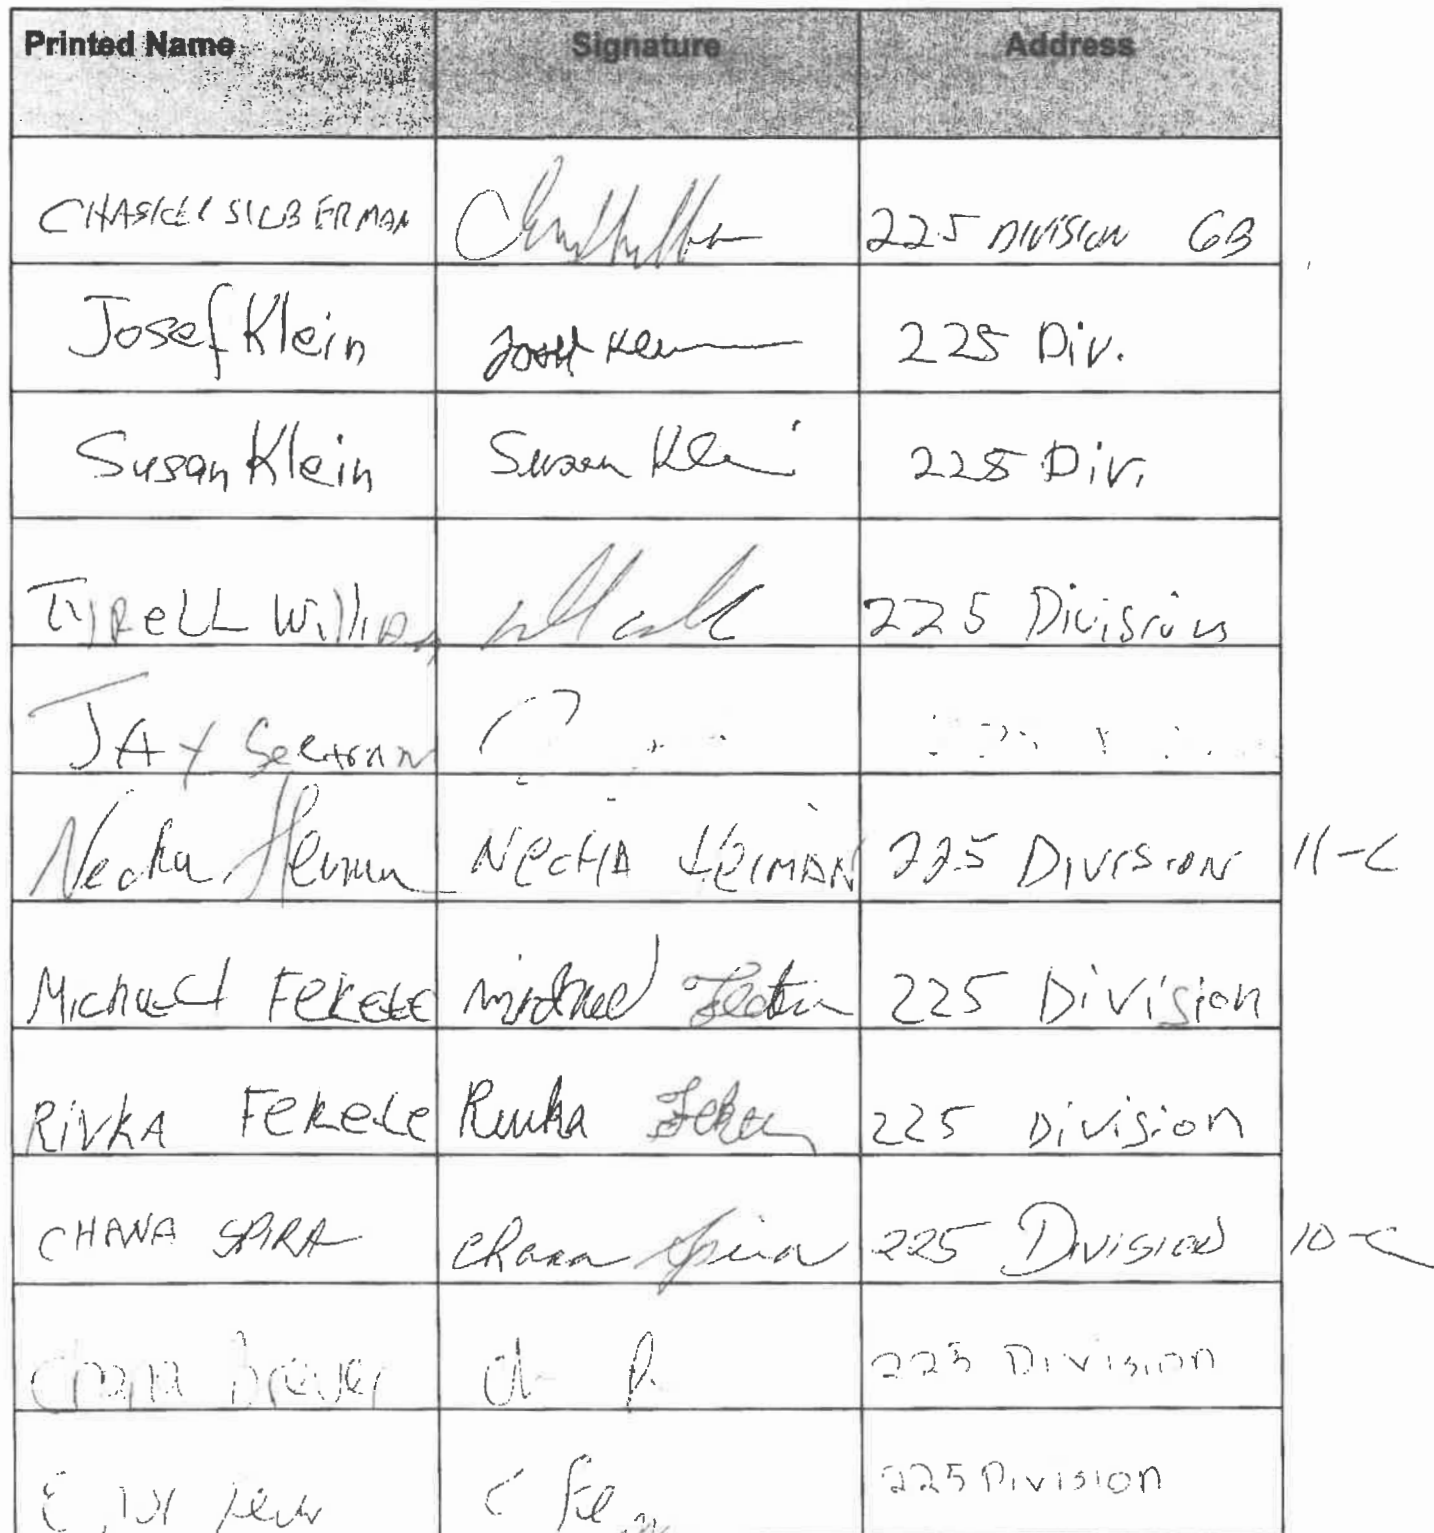 Printed Name Signature Address
CHASKEL SILBERMAN 225 DIVISION 6B
Josef Klein Josef Klein 225 Div.
Susan Klein Susan Klein 225 Div.
TYRELL William 225 Division
JAY
Necha Heiman NECHA HEIMAN 225 DIVISION 11-C
Michael FEKETE Michael Fekete 225 Division
RIVKA FEKETE Rivka Fekete 225 Division
CHANA SPIRA Chana Spira 225 DIVISION 10-C
Chana Brever 225 Division
225 Division